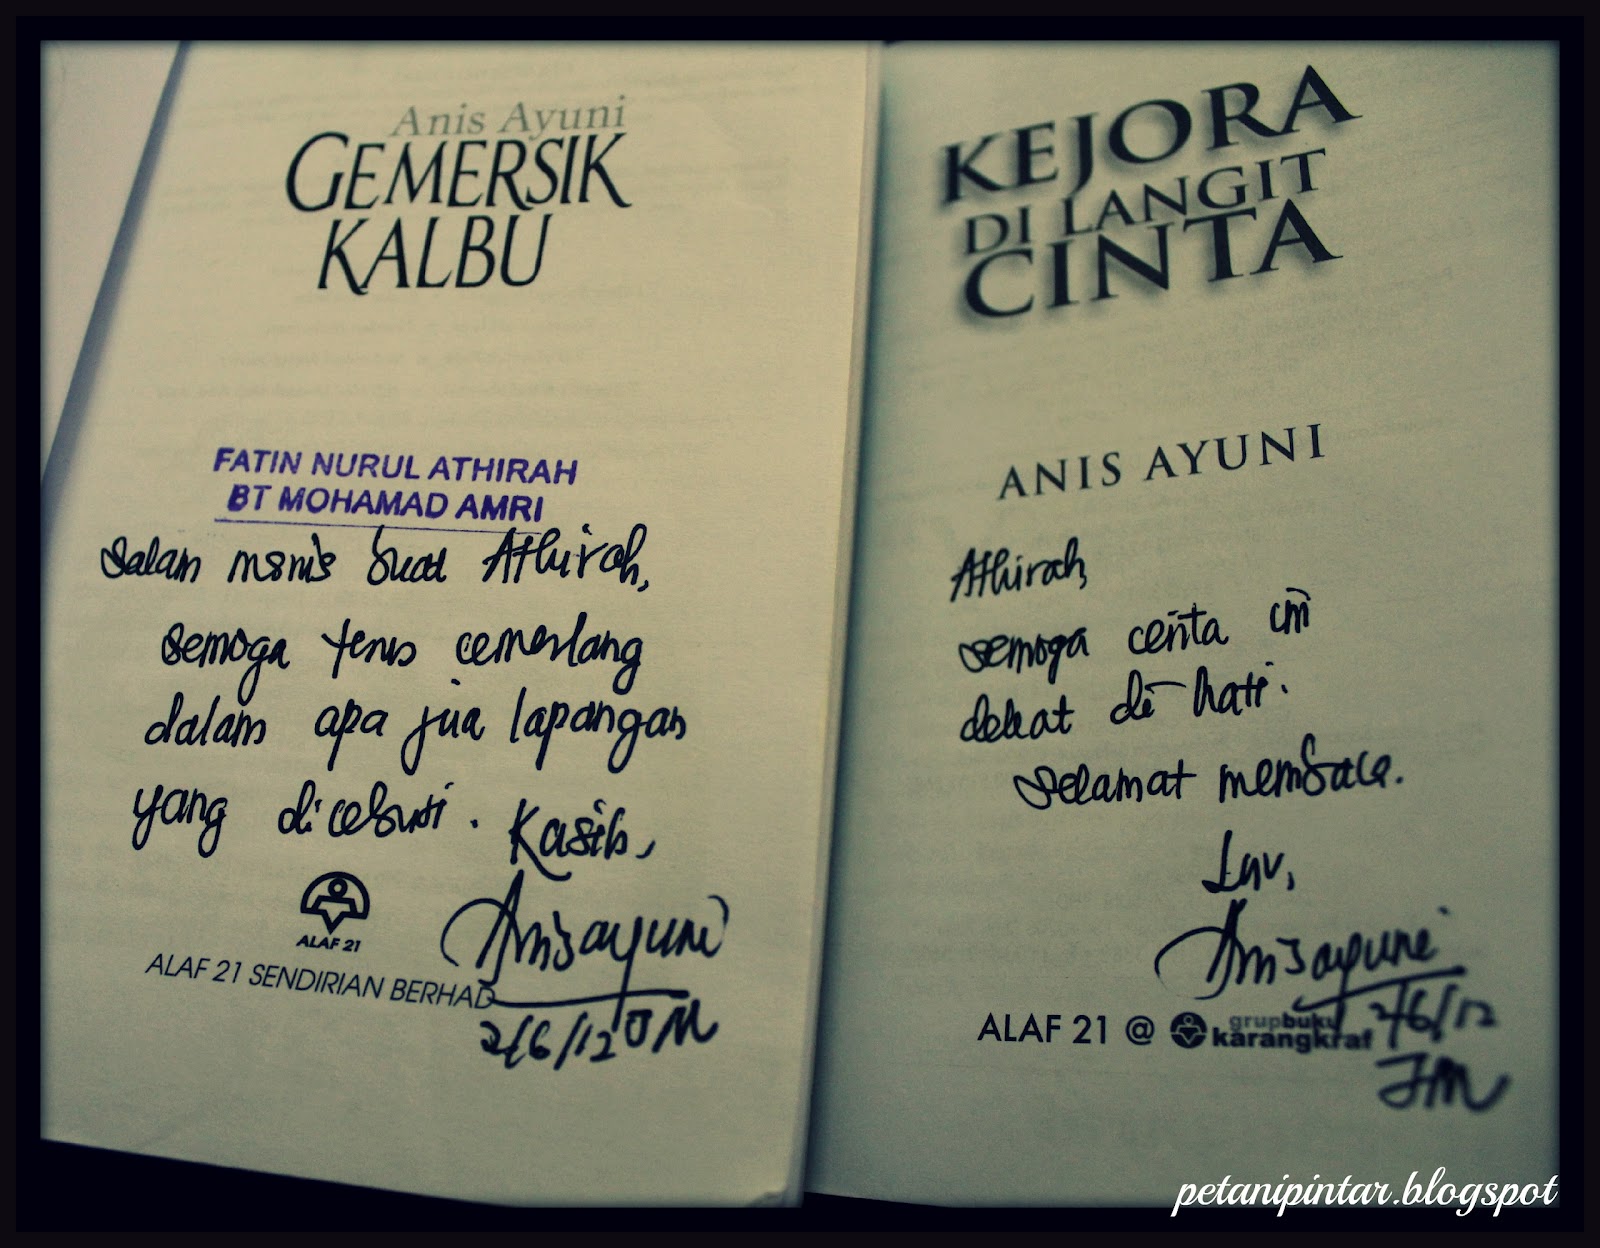 Anis Ayuni
GEMERSIK
KALBU
FATIN NURUL ATHIRAH
BT MOHAMAD AMRI
Salam manis buat Athirah,
semoga terus cemerlang
dalam apa jua lapangan
yang diceburi. Kasih,
Anis ayuni
ALAF 21
ALAF 21 SENDIRIAN BERHAD
2/6/12 JM
KEJORA
DI LANGIT
CINTA
ANIS AYUNI
Athirah,
semoga cerita ini
dekat di hati.
Selamat membaca.
Luv,
Anis ayuni
2/6/12
ALAF 21 @ grupbuku
karangkraf
JM
petanipintar.blogspot